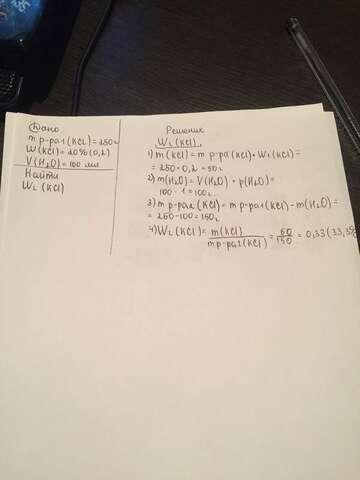 Дано
m р-ра1 (KCl) = 250г
W(KCl) = 20% (0,2)
V(H₂O) = 100 мл
Найти
W₂ (KCl)
Решение
W₂(KCl).
1) m(KCl) = m р-ра(KCl) · W₁(KCl) =
= 250 · 0,2 = 50г
2) m(H₂O) = V(H₂O) · p(H₂O) =
100 · 1 = 100г.
3) m р-ра2 (KCl) = m р-ра1(KCl) - m(H₂O) =
= 250 - 100 = 150г
4) W₂(KCl) = m(KCl) / m р-ра2(KCl) = 50 / 150 = 0,33 (33,3%